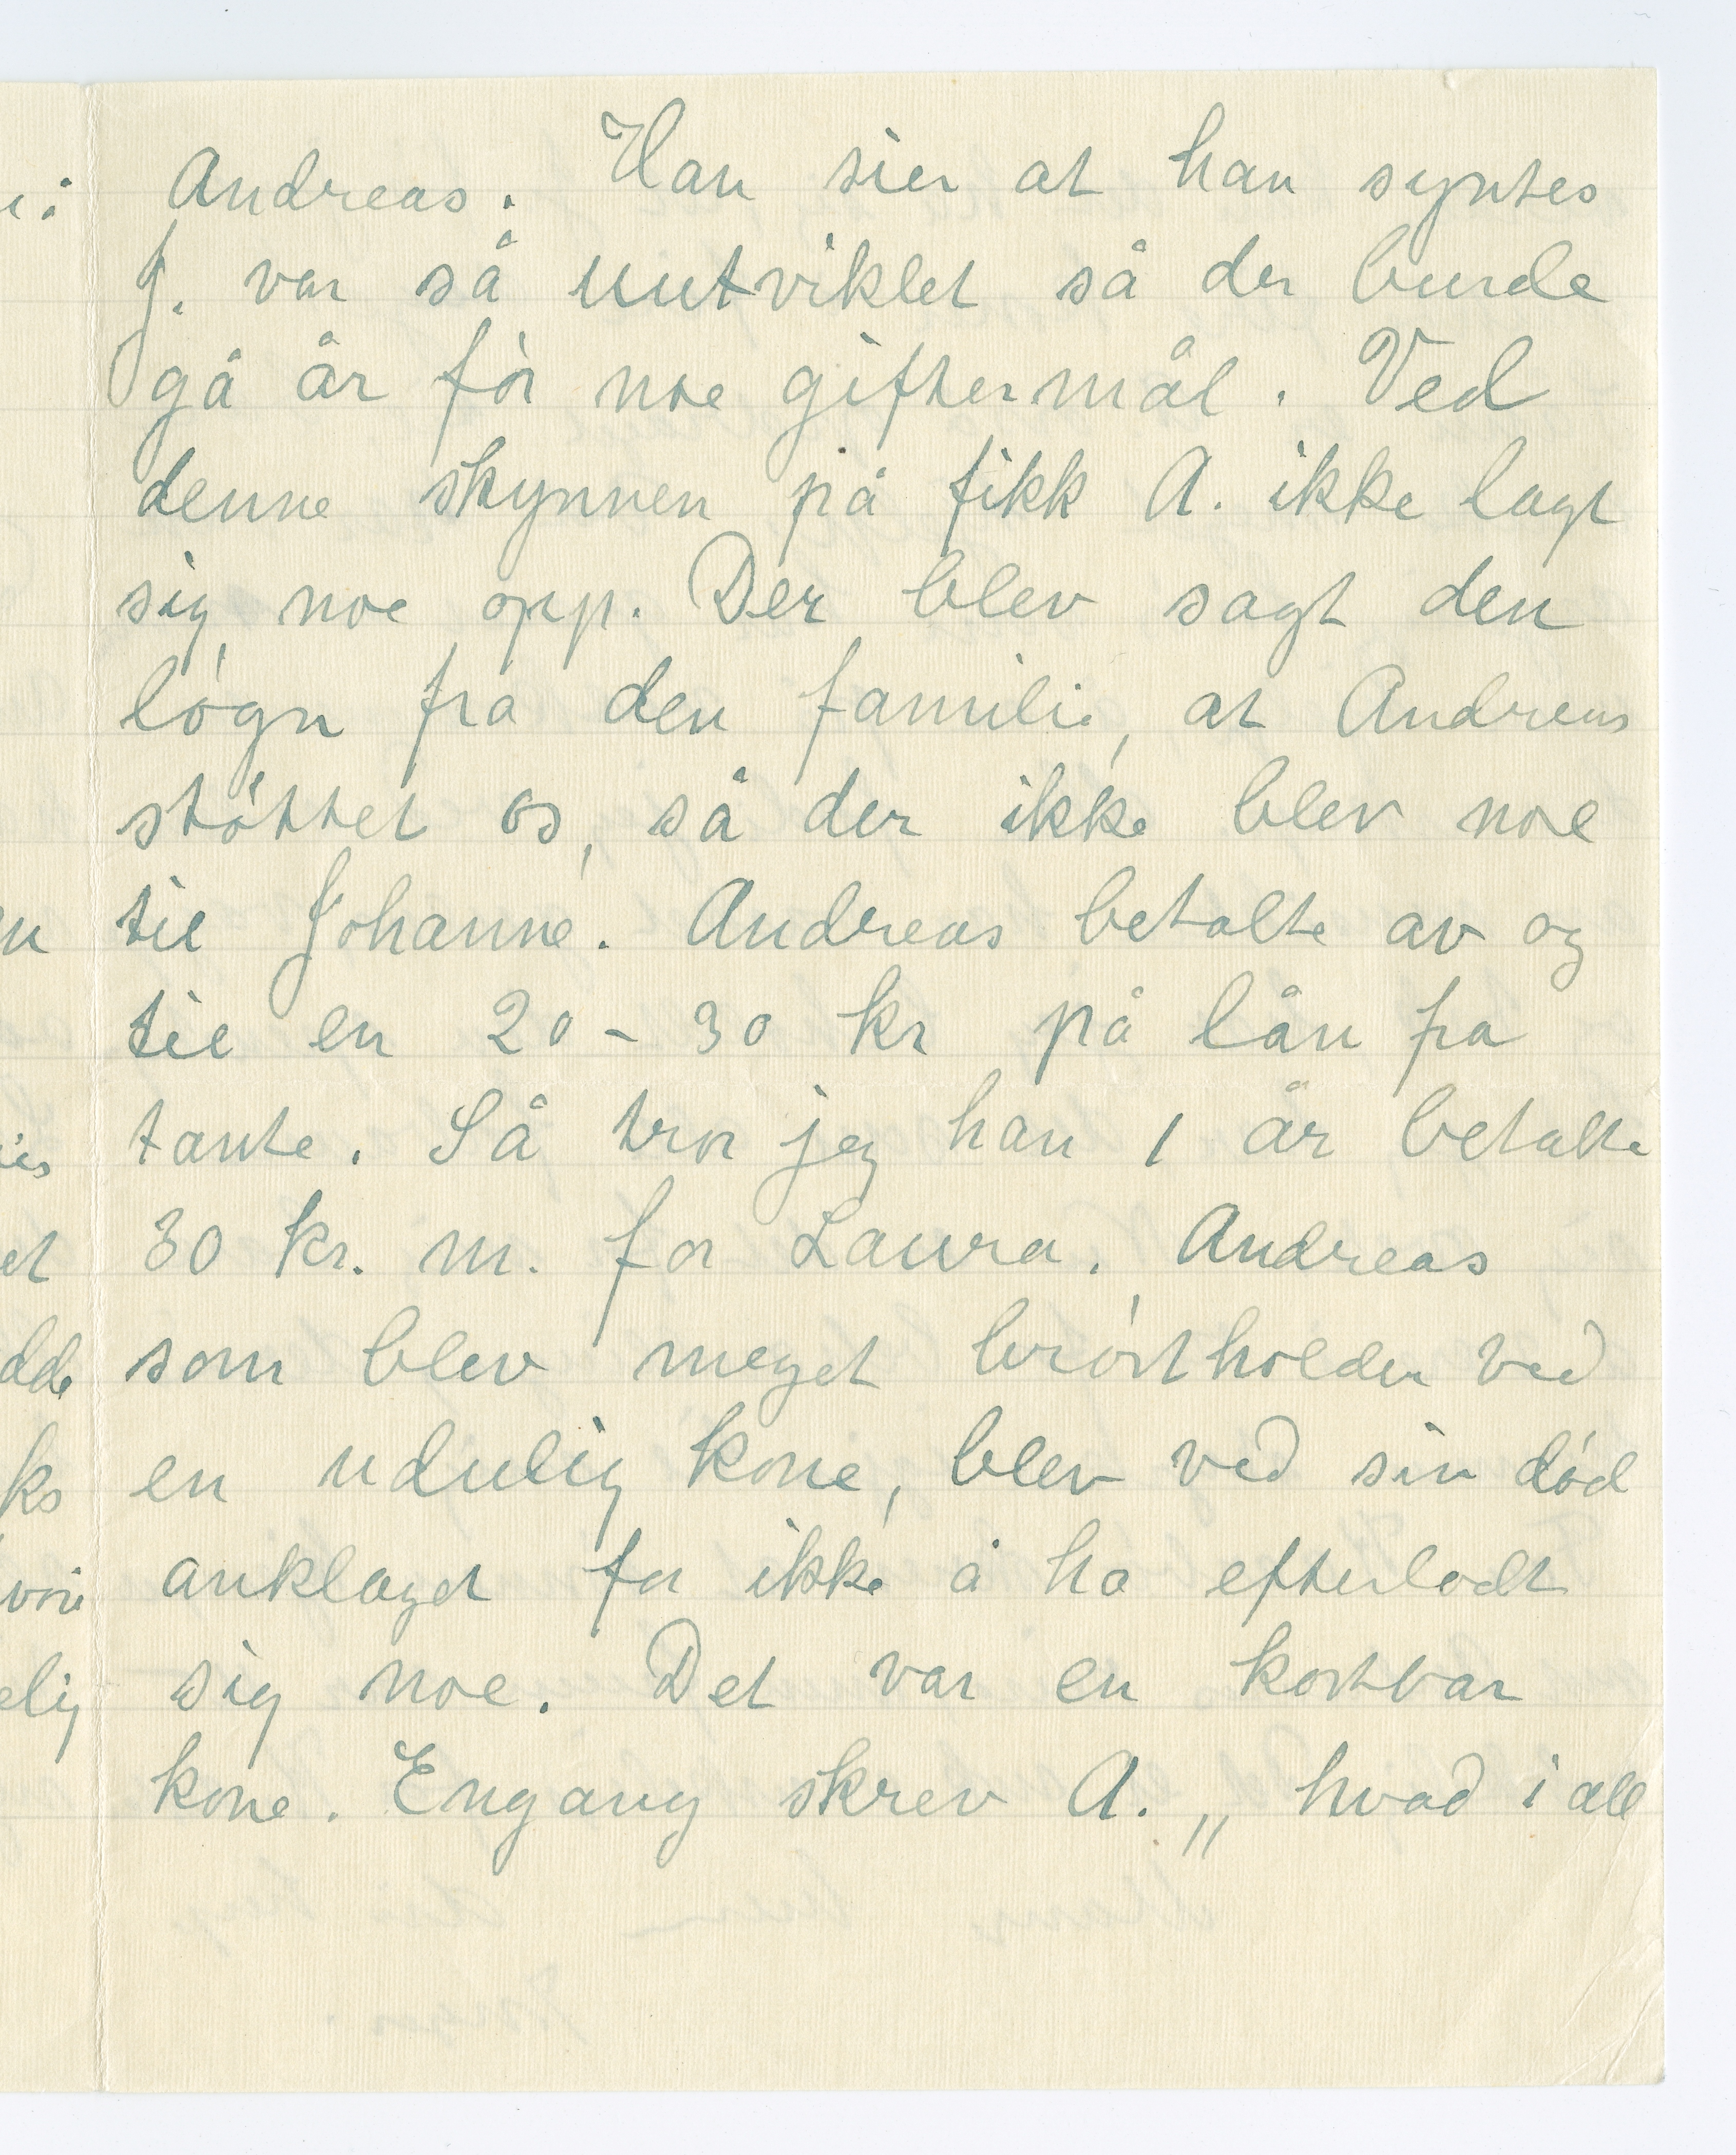 Andreas. Han sier at han syntes
J. var så uutviklet så der burde
gå år før noe giftermål. Ved
denne skynnen på fikk A. ikke lagt
sig noe opp. Der blev sagt den
løgn fra den familie, at Andreas
støttet os, så der ikke blev noe
til Johanne. Andreas betalte av og
til en 20 - 30 kr på lån fra
tante. Så tror jeg han 1 år betalte
30 kr. m. for Laura. Andreas
som blev meget brøstholden ved
en udulig kone, blev ved sin død
anklaget for ikke å ha efterladt
sig noe. Det var en kostbar
kone. Engang skrev A. „ hvad i all